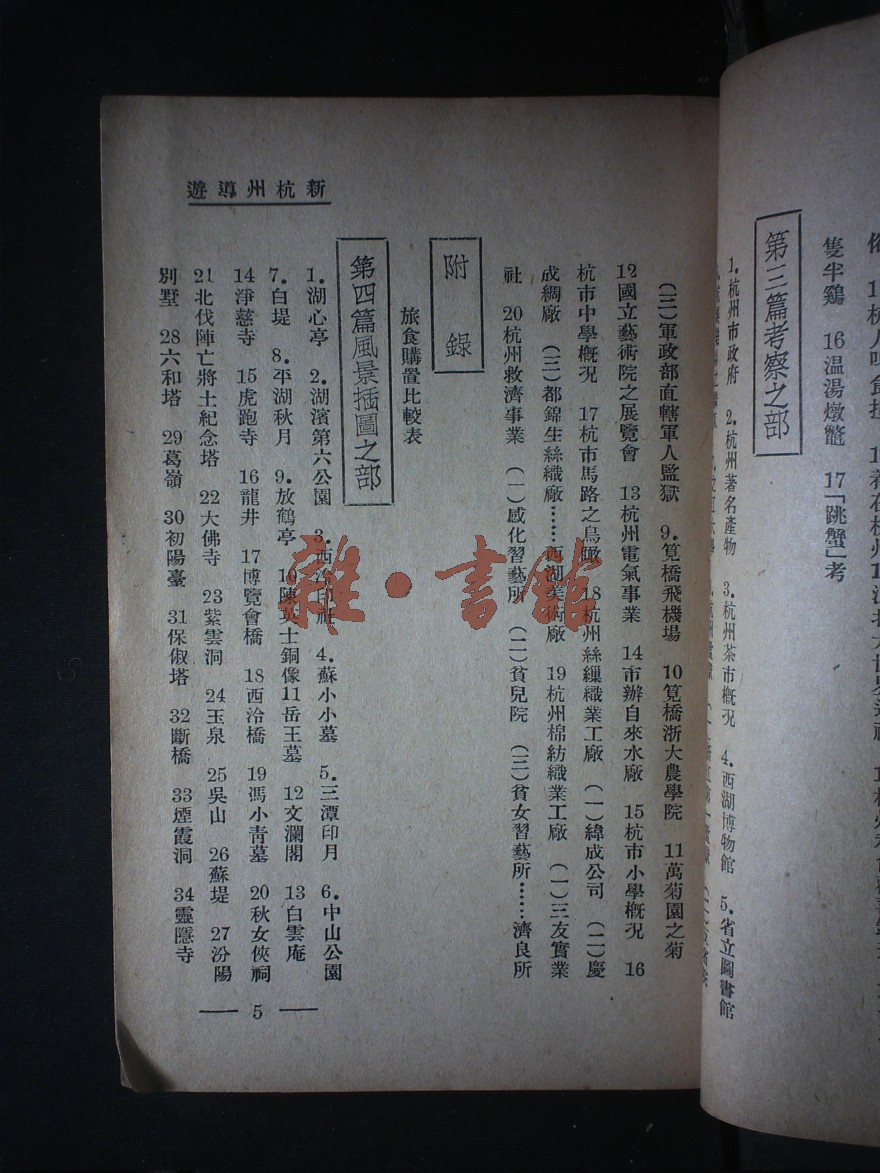 隻半鷄　16温湯燉鼈　17「跳蟹」考
第三篇考察之部
1.杭州市政府　2.杭州著名產物　3.杭州茶市概況　4.西湖博物館　5.省立圖書館
新杭州導遊
（三）軍政部直轄軍人監獄　9.筧橋飛機場　10筧橋浙大農學院　11萬菊園之菊
12國立藝術院之展覽會　13杭州電氣事業　14市辦自來水廠　15杭市小學概況　16
杭市中學概況　17杭市馬路之鳥瞰　18杭州絲繅織業工廠　（一）緯成公司　（二）慶
成綢廠　（三）都錦生絲織廠……西湖美術廠　19杭州棉紡織業工廠　（一）三友實業
社　20杭州救濟事業　（一）感化習藝所　（二）貧兒院　（三）貧女習藝所……濟良所
附錄
旅食購置比較表
第四篇風景插圖之部
1.湖心亭　2.湖濱第六公園　3.西泠印社　4.蘇小小墓　5.三潭印月　6.中山公園
7.白堤　8.平湖秋月　9.放鶴亭　10陳英士銅像　11岳王墓　12文瀾閣　13白雲庵
14淨慈寺　15虎跑寺　16龍井　17博覽會橋　18西泠橋　19馮小青墓　20秋女俠祠
21北伐陣亡將士紀念塔　22大佛寺　23紫雲洞　24玉泉　25吳山　26蘇堤　27汾陽
別墅　28六和塔　29葛嶺　30初陽臺　31保俶塔　32斷橋　33煙霞洞　34靈隱寺
— 5 —
雜·書館